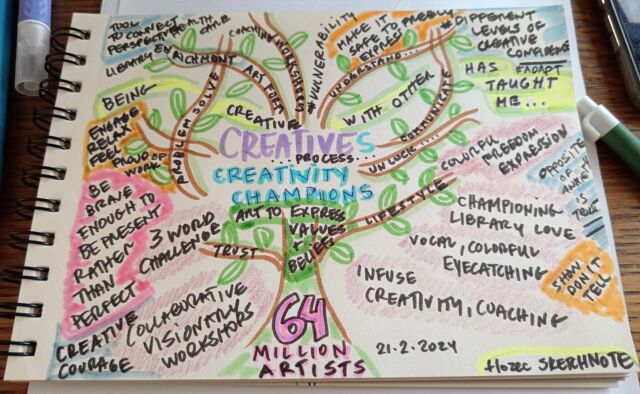 TOOL
TO CONNECT
PERSPECTV HEALTH
CARE
LIBRARY ENRICHMENT
COACHING WORKSHOPS
ART FORM
#VULNERABILITY
MAKE IT
SAFE TO FREELY
EXPRESS
UNDERSTAND...
#DIFFERENT
LEVELS OF
CREATIVE
CONFIDENCE
HAS #ADAPT
TAUGHT
ME...
BEING
PROBLEM SOLVE
CREATIVE
WITH OTHER
COMMUNICATE
ENGAGE
RELAX
FEEL
PROUD OF
WORK
CREATIVES
...PROCESS...
CREATIVITY
CHAMPIONS
UNLOCK...
COLORFUL FREEDOM
EXPRESSION
OPPOSITE
OF
IS
TRUE
BE
BRAVE
ENOUGH TO
BE PRESENT
RATHER
THAN
PERFECT
3 WORLD
CHALLENGE
TRUST
ART TO EXPRESS
VALUES
+
BELIEFS
LIFESTYLE
CHAMPIONING
LIBRARY LOVE
VOCAL, COLORFUL
EYECATCHING
SHOW,
DON'T
TELL
INFUSE
CREATIVITY, COACHING
COLLABORATIVE
VISIONARY
WORKSHOPS
CREATIVE
COURAGE
64
MILLION
ARTISTS
21.2.2024
SKERHNOTE